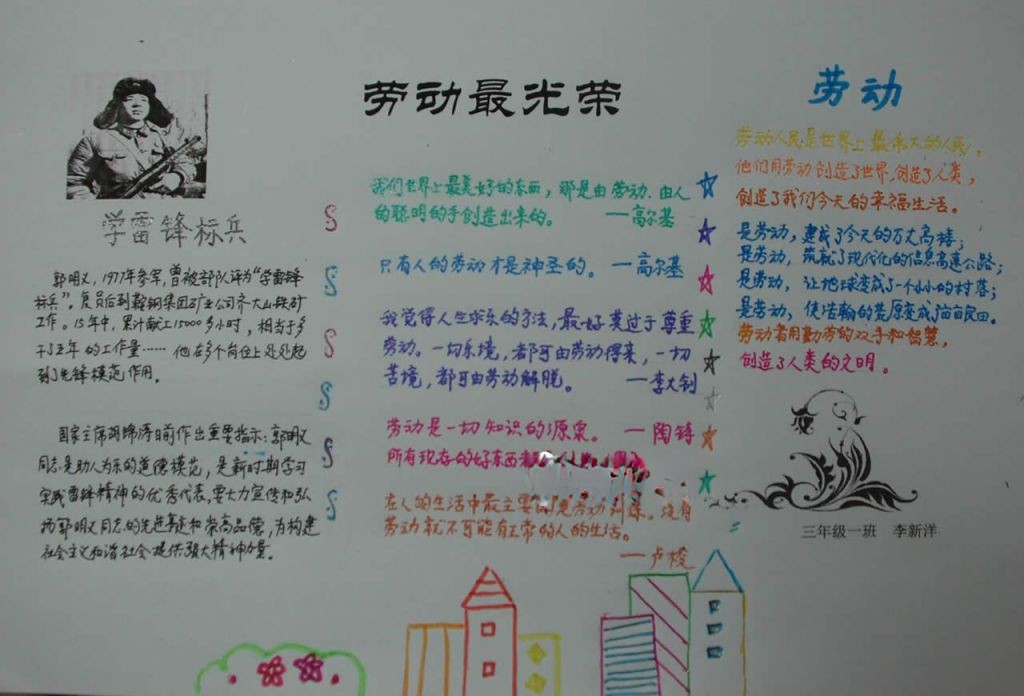 劳动最光荣
学雷锋标兵
郭明义,1977年参军,曾被部队评为“学雷锋
标兵”。复员后到鞍钢集团矿业公司齐大山铁矿
工作。15年中,累计献工15000多小时,相当于多
干了五年的工作量……他在多个岗位上处处起
到了先锋模范作用。
国家主席胡锦涛日前作出重要指示:郭明义
同志是助人为乐的道德模范,是新时期学习
实践雷锋精神的优秀代表,要大力宣传和弘
扬郭明义同志的先进事迹和崇高品德,为构建
社会主义和谐社会提供强大精神力量。
我们世界上最美好的东西,那是由劳动、由人
的聪明的手创造出来的。 —高尔基
只有人的劳动才是神圣的。 —高尔基
我觉得人生求乐的方法,最好莫过于尊重
劳动。一切乐境,都可由劳动得来,一切
苦境,都可由劳动解脱。 —李大钊
劳动是一切知识的源泉。 —陶铸
所有现存的好东西都
在人的生活中最主要的是劳动训练。没有
劳动就不可能有正常的人的生活。
—卢梭
劳动
劳动人民是世界上最伟大的人民,
他们用劳动创造了世界,创造了人类,
创造了我们今天的幸福生活。
是劳动,建成了今天的万丈高楼;
是劳动,筑就了现代化的信息高速公路;
是劳动,让地球变成了一个小小的村落;
是劳动,使浩瀚的荒原变成了亩亩良田。
劳动者用勤劳的双手和智慧,
创造了人类的文明。
三年级一班 李新洋